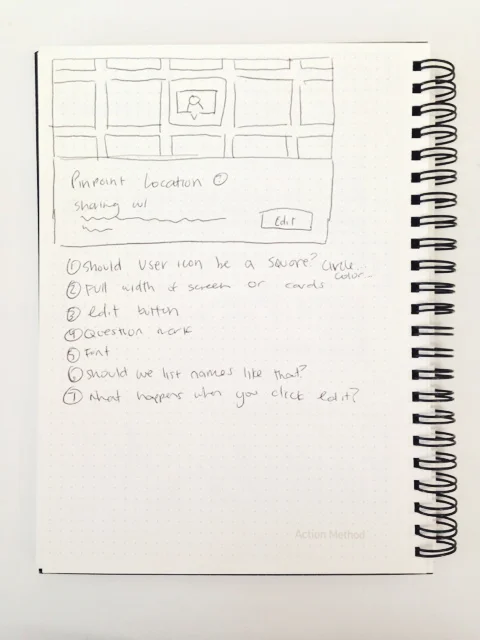 Pinpoint Location ?
Sharing w/
Edit
① Should user icon be a square? Circle...
color...
② Full width of screen or cards
③ edit button
④ Question mark
⑤ Font
⑥ Should we list names like that?
⑦ What happens when you click edit?
Action Method